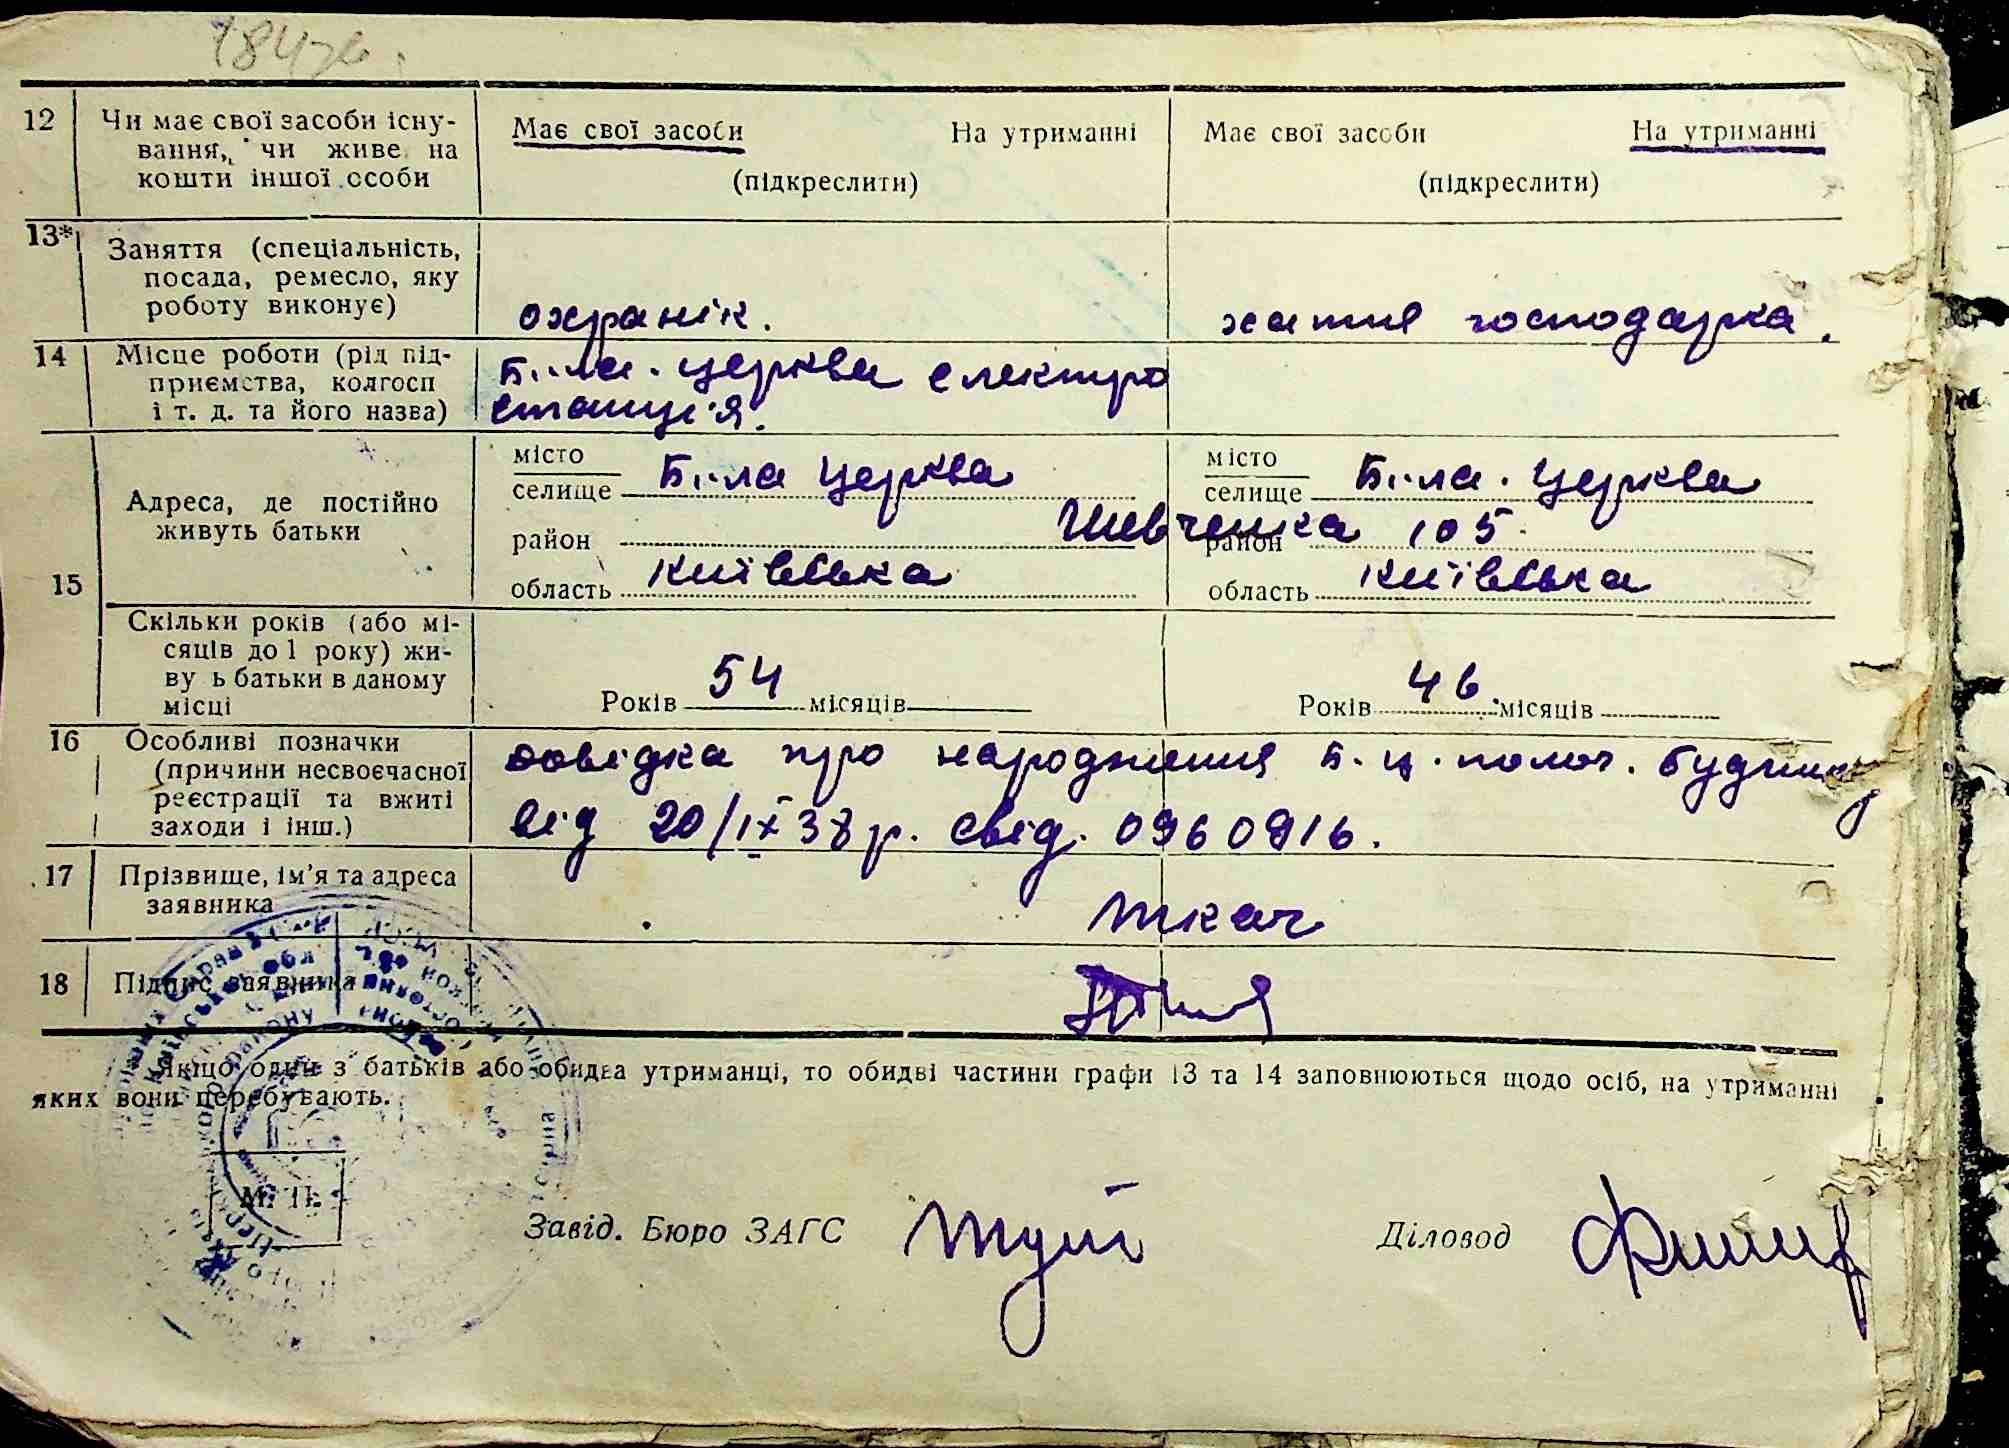 12 Чи має свої засоби існу- Має свої засоби На утриманні Має свої засоби На утриманні
вання, чи живе на
кошти іншої особи (підкреслити) (підкреслити)
13* Заняття (спеціальність,
посада, ремесло, яку
роботу виконує) охранік. хатня господарка.
14 Місце роботи (рід під- Біла. церква електро
приємства, колгосп
і т. д. та його назва) станція.
місто місто
Біла церква Біла. церква
селище селище
Адреса, де постійно
живуть батьки
Шевченка 105.
район район
область Київська область Київська
15
Скільки років (або мі-
сяців до 1 року) жи-
ву ь батьки в даному
місці Років 54 місяців Років 46. місяців
16 Особливі позначки
(причини несвоєчасної довідка про народження Б. ц. полог. будинку
реєстрації та вжиті
заходи і інш.) від 20/IX 38 р. свід. 0960916.
17 Прізвище, ім'я та адреса
заявника Ткач
18 Підпис заявника
Якщо один з батьків або обидва утриманці, то обидві частини графи 13 та 14 заповнюються щодо осіб, на утриманні
яких вони перебувають.
М. П.
Завід. Бюро ЗАГС Діловод